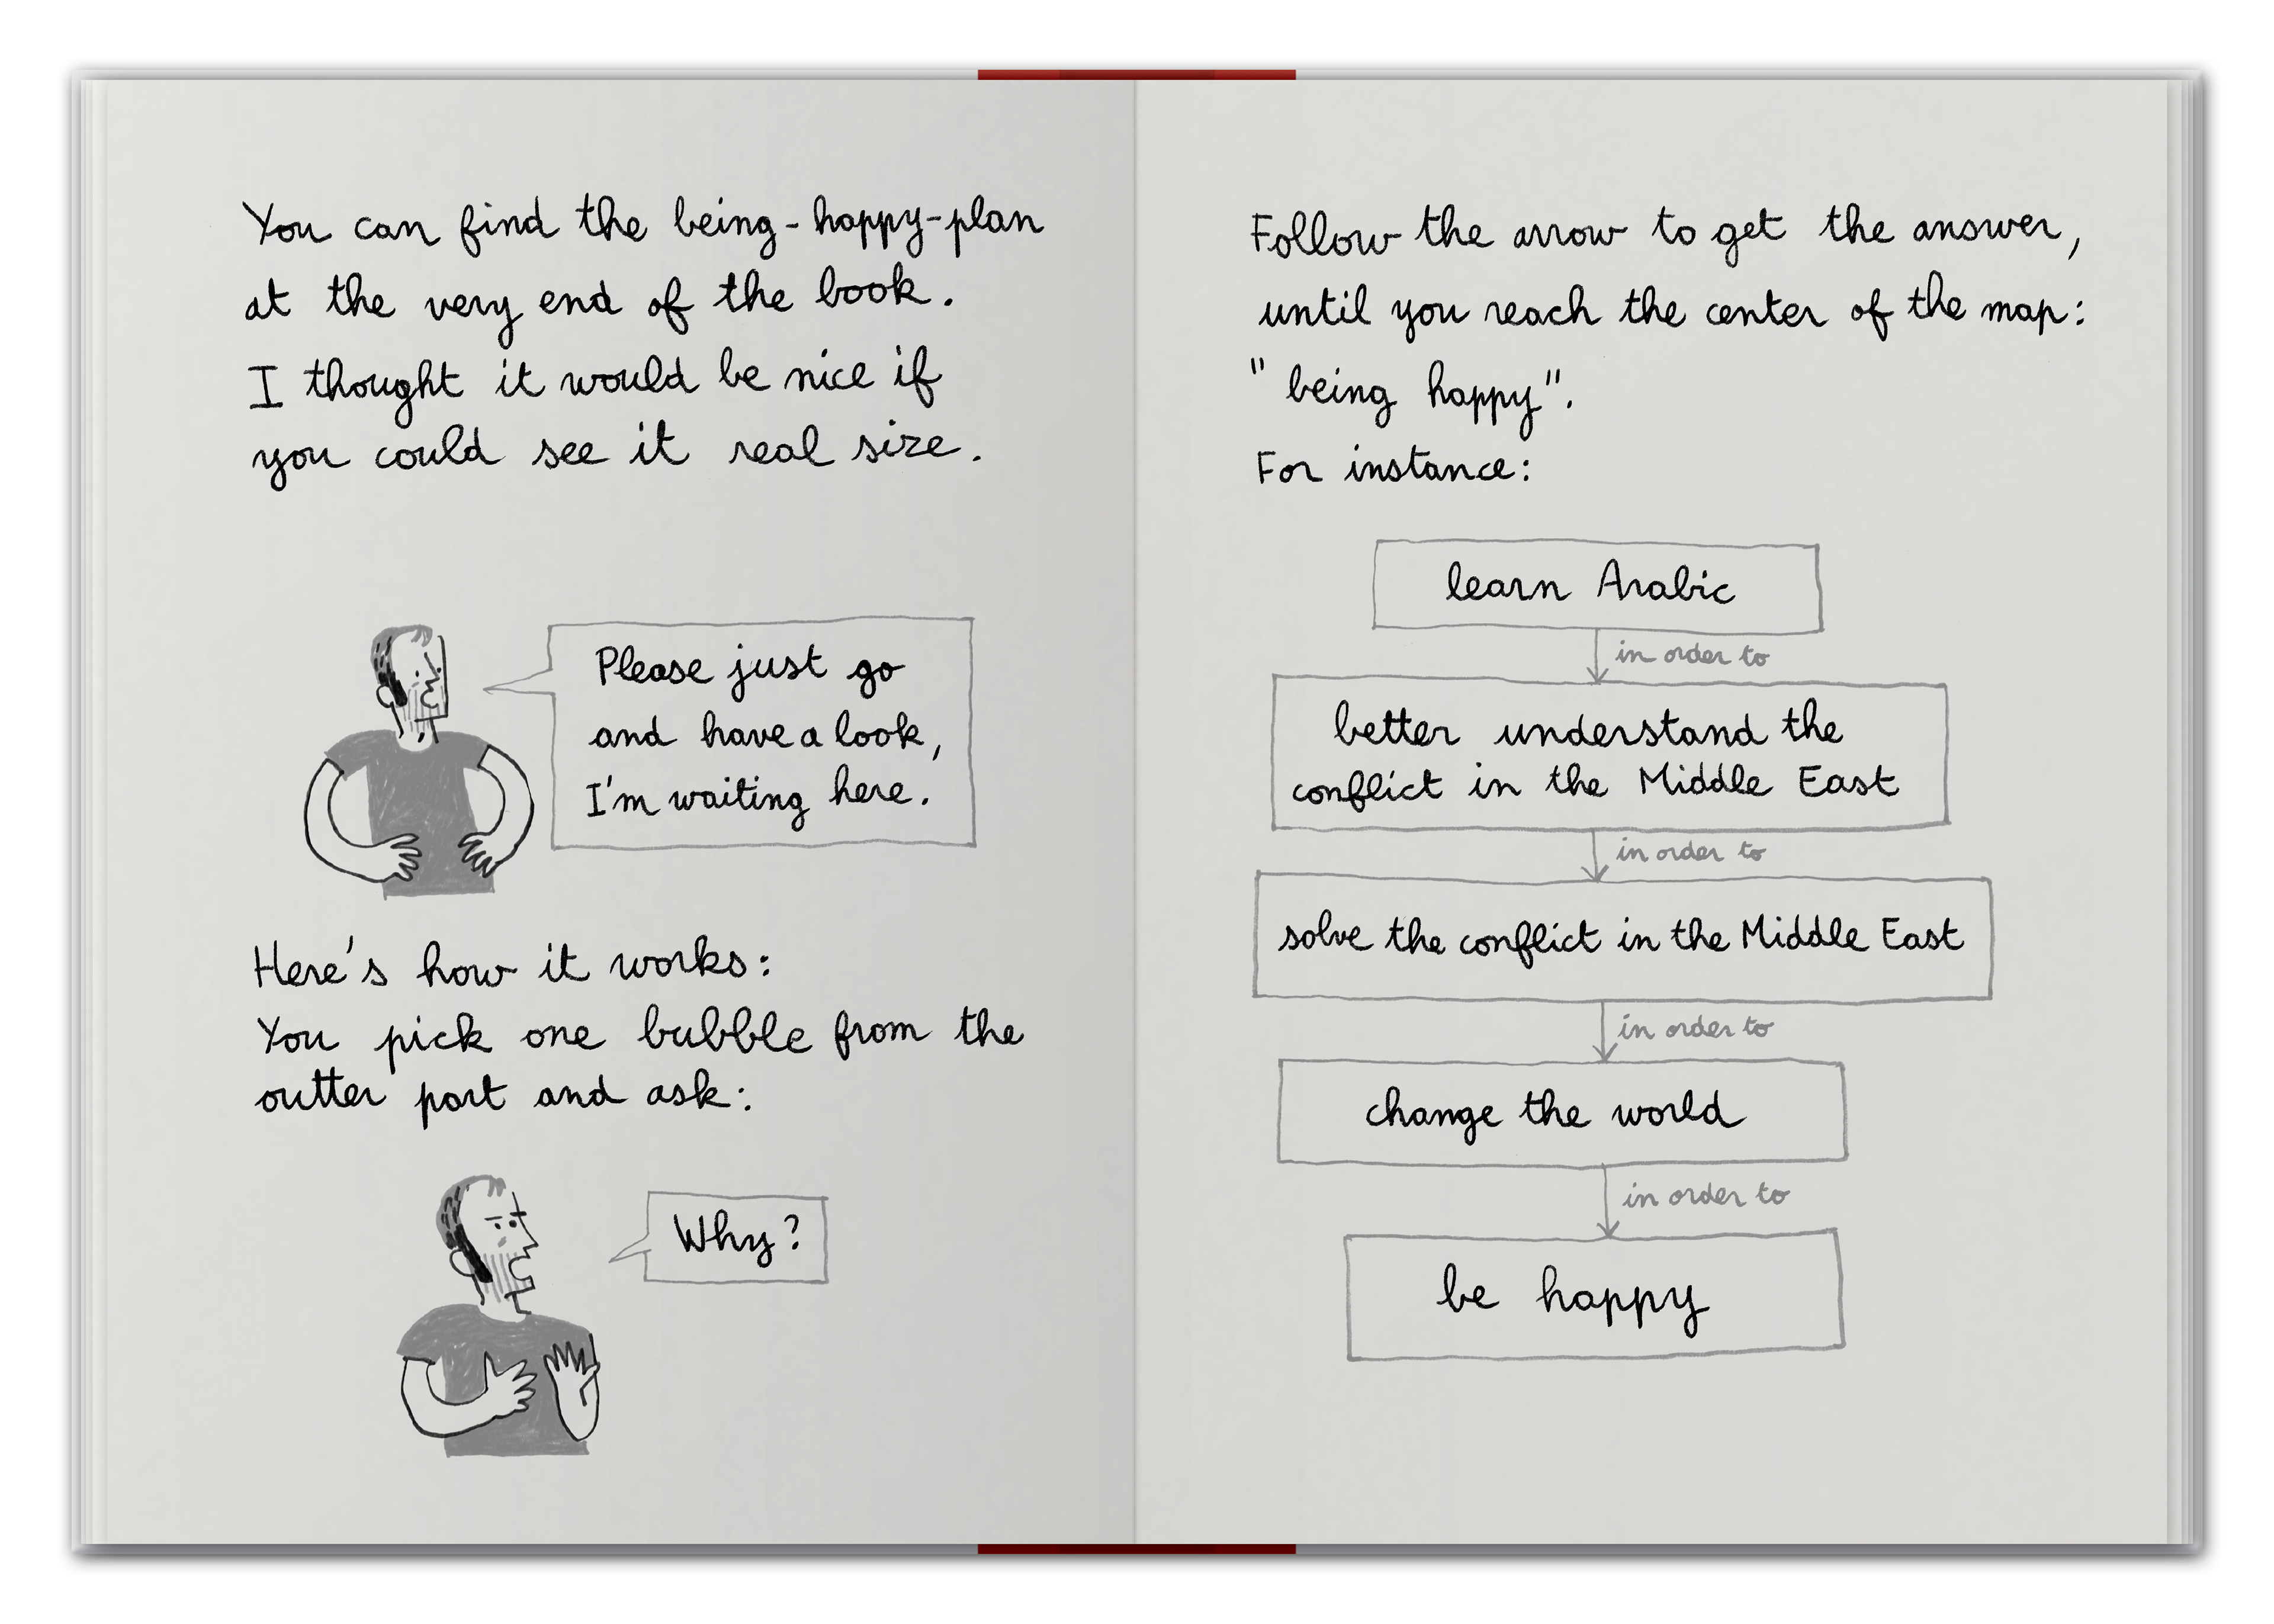 You can find the being-happy-plan
at the very end of the book.
I thought it would be nice if
you could see it real size.
Please just go
and have a look,
I'm waiting here.
Here's how it works:
You pick one bubble from the
outter part and ask:
Why?
Follow the arrow to get the answer,
until you reach the center of the map:
"being happy".
For instance:
learn Arabic
in order to
better understand the
conflict in the Middle East
in order to
solve the conflict in the Middle East
in order to
change the world
in order to
be happy